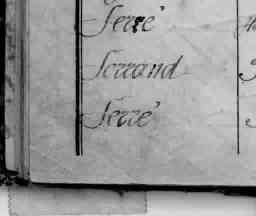 Serré
Sorrand
Serré